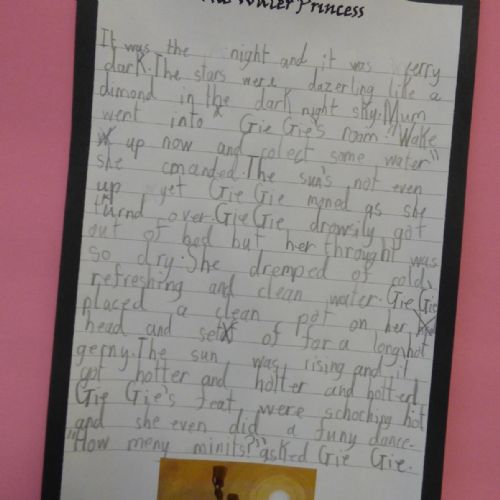 The Water Princess
It was the night and it was verry
dark.The stars were dazerling like a
dimond in the dark night sky.Mum
went into Gie Gie's room."Wake
up now and colect some water"
she cmanded.The sun's not even
up yet Gie Gie moned as she
turnd over.Gie Gie drowsily got
out of bed but her throught was
so dry.She dremped of cold,
refreshing and clean water.Gie Gie
placed a clean pot on her
head and set of for a long hot
gerny.The sun was rising and it
got hotter and hotter and hotter!
Gie Gie's feat were schoching hot
and she even did a funy dance.
"How meny minits?"asked Gie Gie.